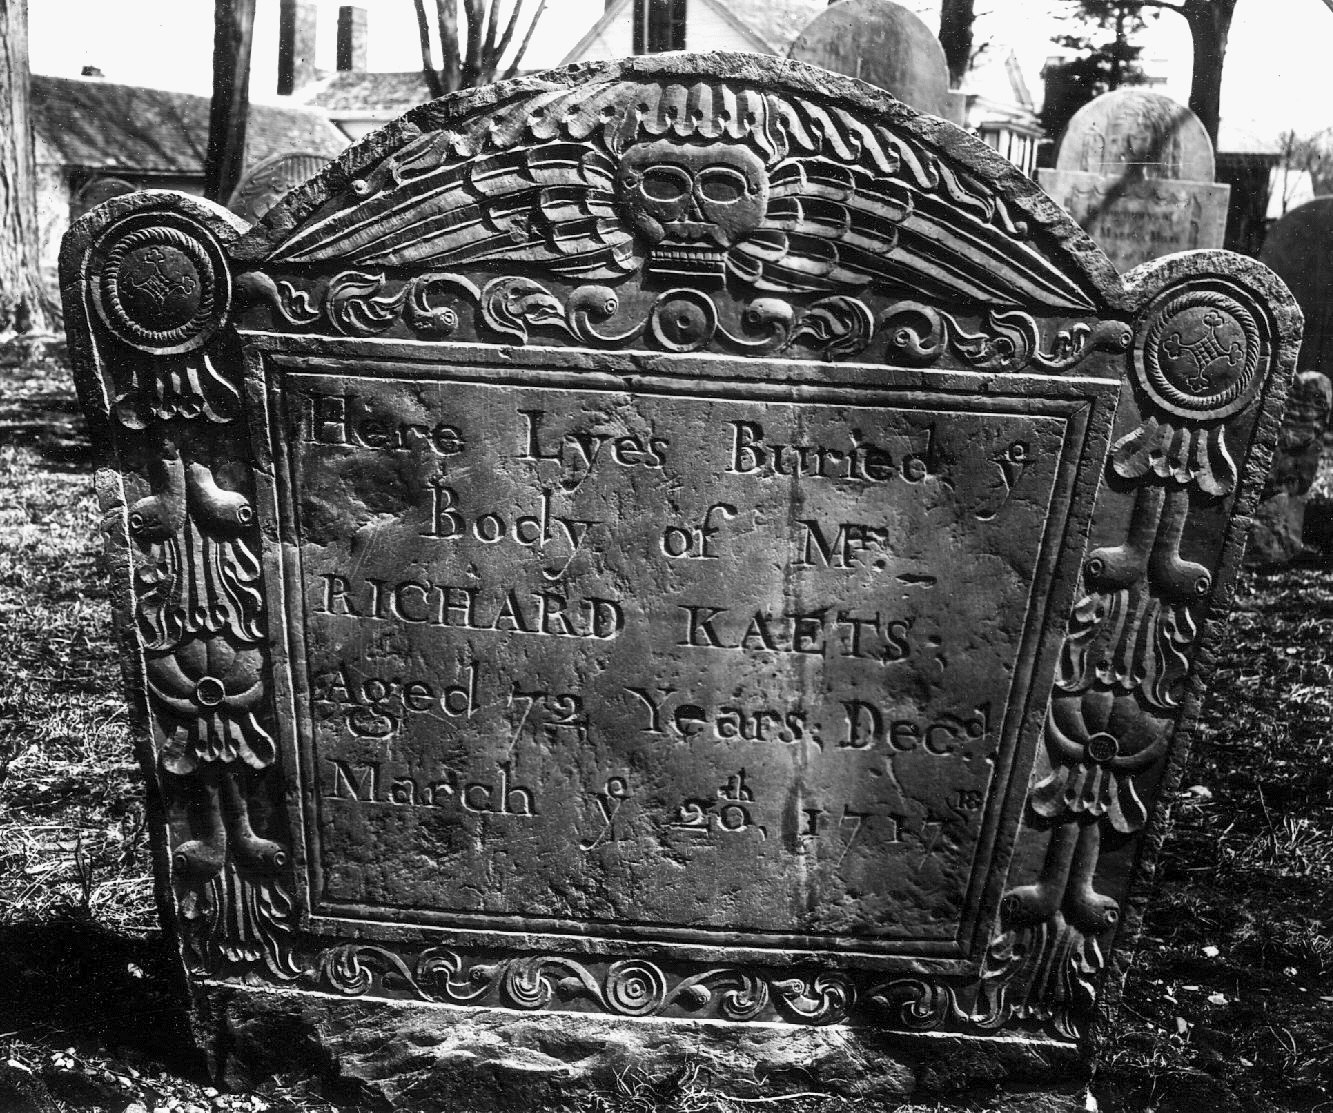 Here Lyes Buried yᵉ
Body of Mʳ.
RICHARD KAETS;
Aged 72 Years; Decᵈ
March yᵉ 20ᵗʰ, 1717⁄18